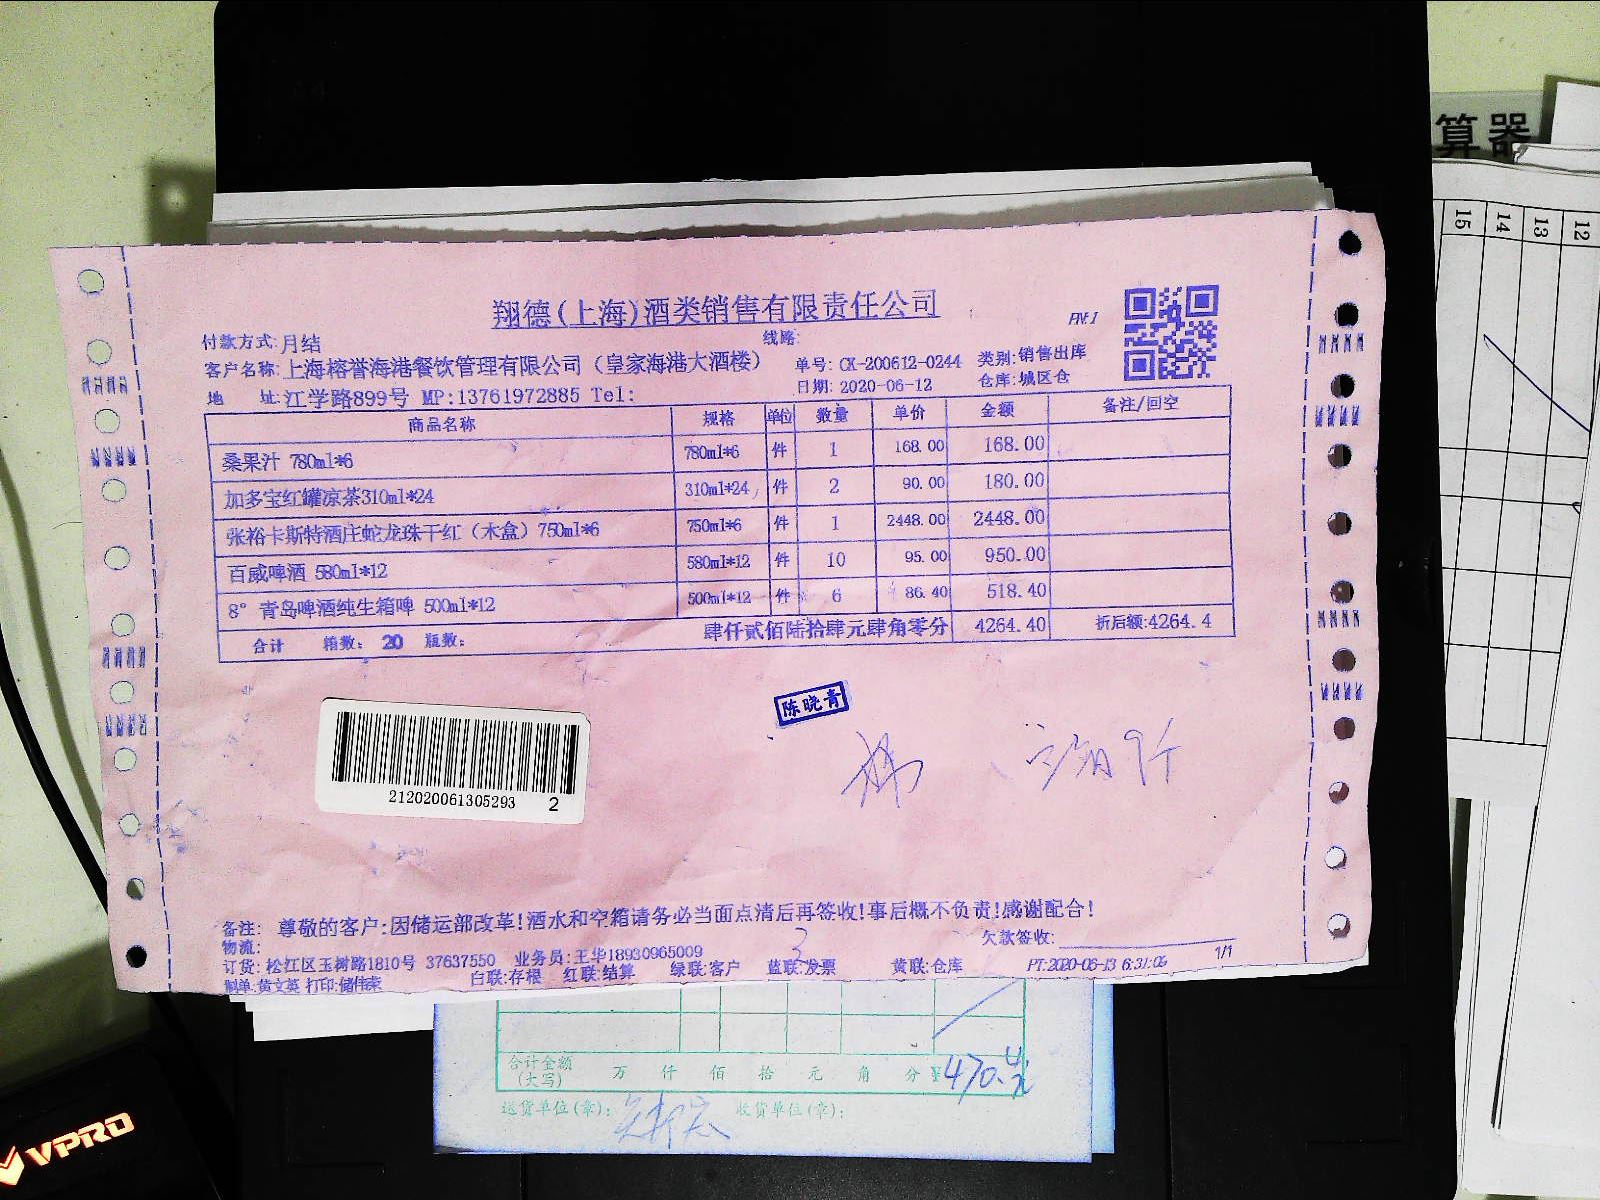 算器
15 14 13 12
翔德(上海)酒类销售有限责任公司
付款方式:月结 线路:
客户名称:上海榕誉海港餐饮管理有限公司（皇家海港大酒楼） 单号: CX-200612-0244 类别:销售出库
地 址:江学路899号 MP:13761972885 Tel: 日期: 2020-06-12 仓库:城区仓
商品名称 规格 单位 数量 单价 金额 备注/回空
桑果汁 780ml*6 780ml*6 件 1 168.00 168.00
加多宝红罐凉茶310ml*24 310ml*24 件 2 90.00 180.00
张裕卡斯特酒庄蛇龙珠干红（木盒）750ml*6 750ml*6 件 1 2448.00 2448.00
百威啤酒 580ml*12 580ml*12 件 10 95.00 950.00
8° 青岛啤酒纯生箱啤 500ml*12 500ml*12 件 6 86.40 518.40
合计 箱数: 20 瓶数: 肆仟贰佰陆拾肆元肆角零分 4264.40 折后额:4264.4
陈晓青
212020061305293 2
备注: 尊敬的客户:因储运部改革!酒水和空箱请务必当面点清后再签收!事后概不负责!感谢配合!
物流: 欠款签收:
订货: 松江区玉树路1810号 37637550 业务员:王华18930965009 1/1
制单:黄文英 打印:储伟荣 白联:存根 红联:结算 绿联:客户 蓝联:发票 黄联:仓库 PT:2020-06-13 6:31:09
合计金额
(大写) 万 仟 佰 拾 元 角 分 470.4
送货单位(章): 收货单位(章):
VPRO